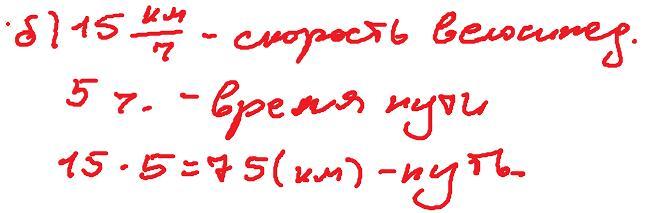 б) 15 км/ч - скорость велосипед.
5 ч. - время пути
15 · 5 = 75 (км) - путь.